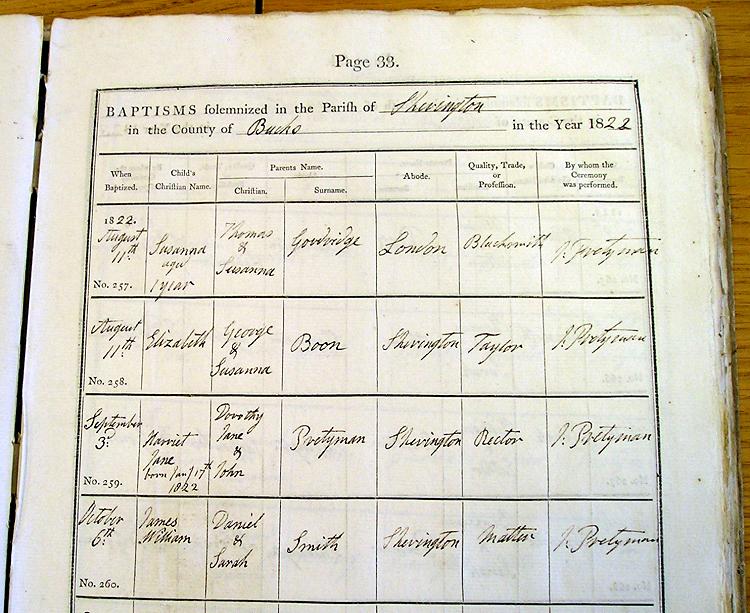 Page 33.
BAPTISMS solemnized in the Parish of Sherington
in the County of Bucks in the Year 1822
When Baptized. Child's Christian Name. Parents Name. Abode. Quality, Trade, or Profession. By whom the Ceremony was performed.
Christian. Surname.
1822.
August 11th Susanna aged 1 year Thomas & Susanna Goodridge London Blacksmith J. Pretyman
No. 257.
August 11th Elizabeth George & Susanna Boon Sherington Taylor J. Pretyman
No. 258.
September 3d Harriet Jane born Jany 17th 1822 Dorothy Jane & John Pretyman Sherington Rector J. Pretyman
No. 259.
October 6th James William Daniel & Sarah Smith Sherington J. Pretyman
No. 260.